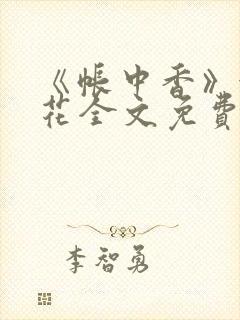 《帐中香》
花全文免費
李智勇